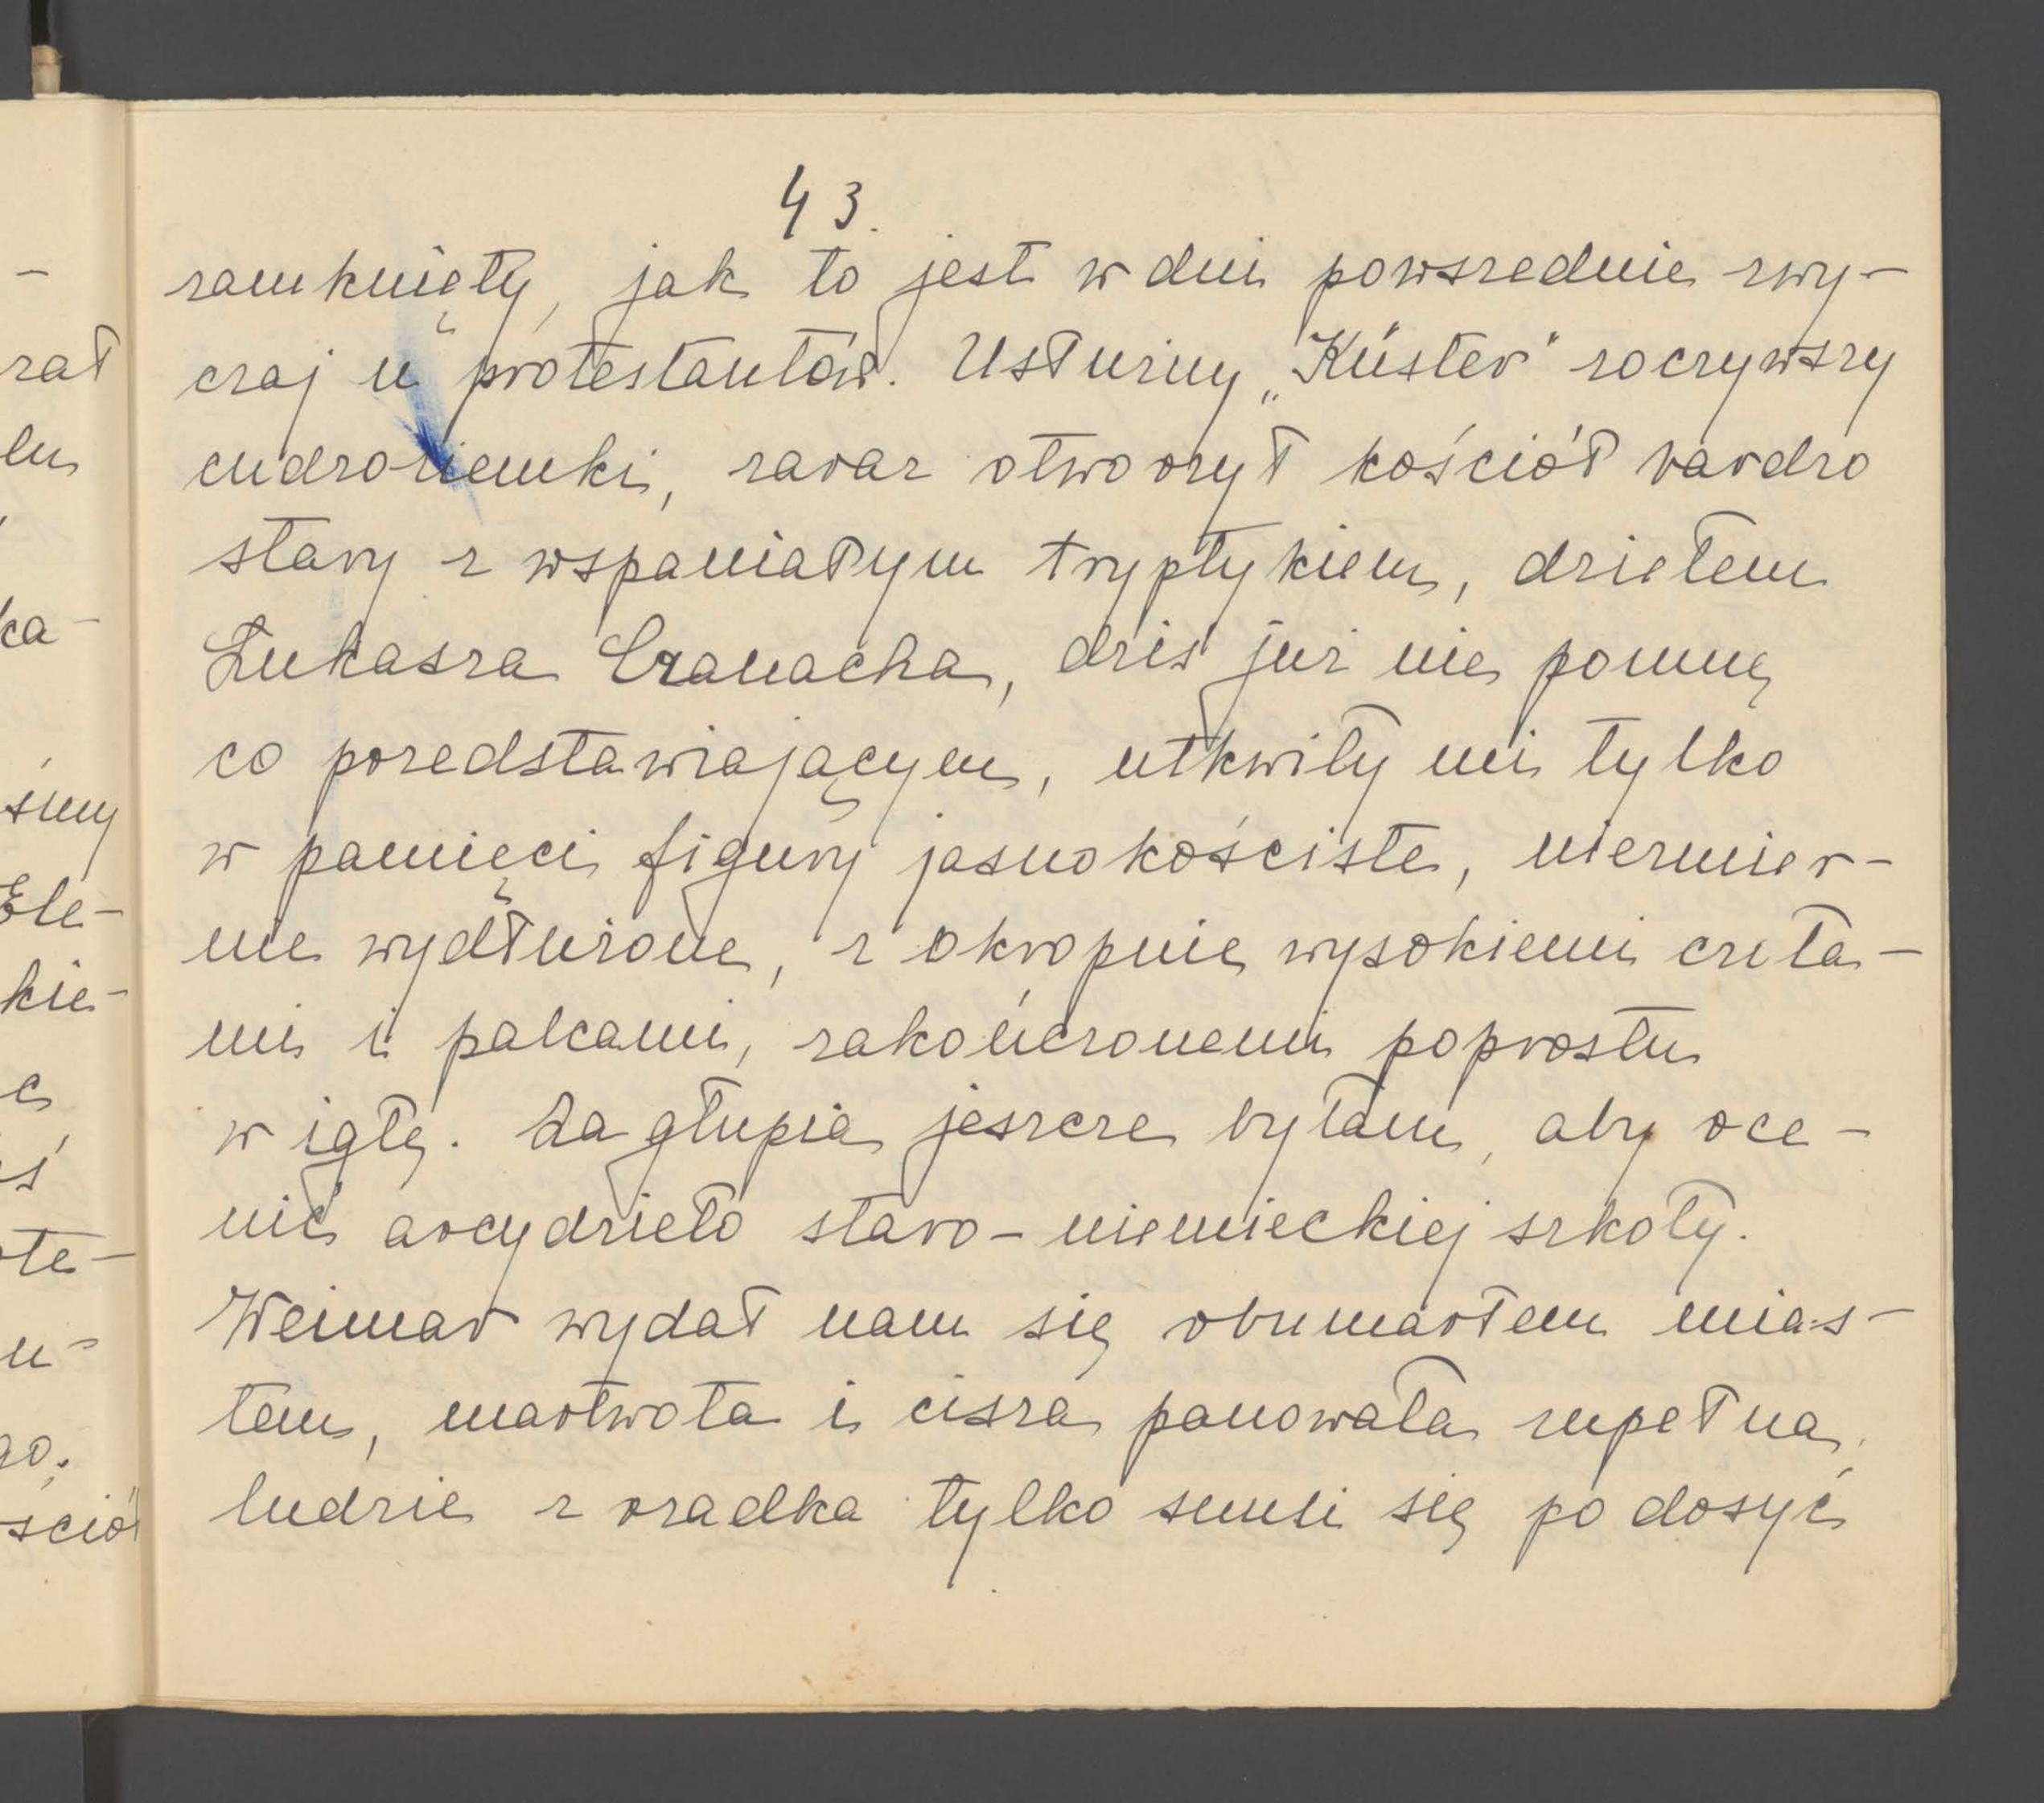 43.
zamknięty, jak to jest w dni powszednie zwy-
czaj u protestantów. Usłużny „Küster" zoczywszy
cudzoziemki, zaraz otworzył kościół bardzo
stary z wspaniałym tryptykiem, dziełem
Łukasza Cranacha, dziś już nie pomnę
co przedstawiającym, utkwiły mi tylko
w pamięci figury jasnokościste, niezmier-
nie wydłużone, z okropnie wysokiemi czoła-
mi i palcami, zakończonemi poprostu
w igłę. Za głupia jeszcze byłam, aby oce-
nić arcydzieło staro-niemieckiej szkoły.
Weimar wydał nam się obumarłem mias-
tem, martwota i cisza panowała zupełna,
ludzie z rzadka tylko snuli się po dosyć